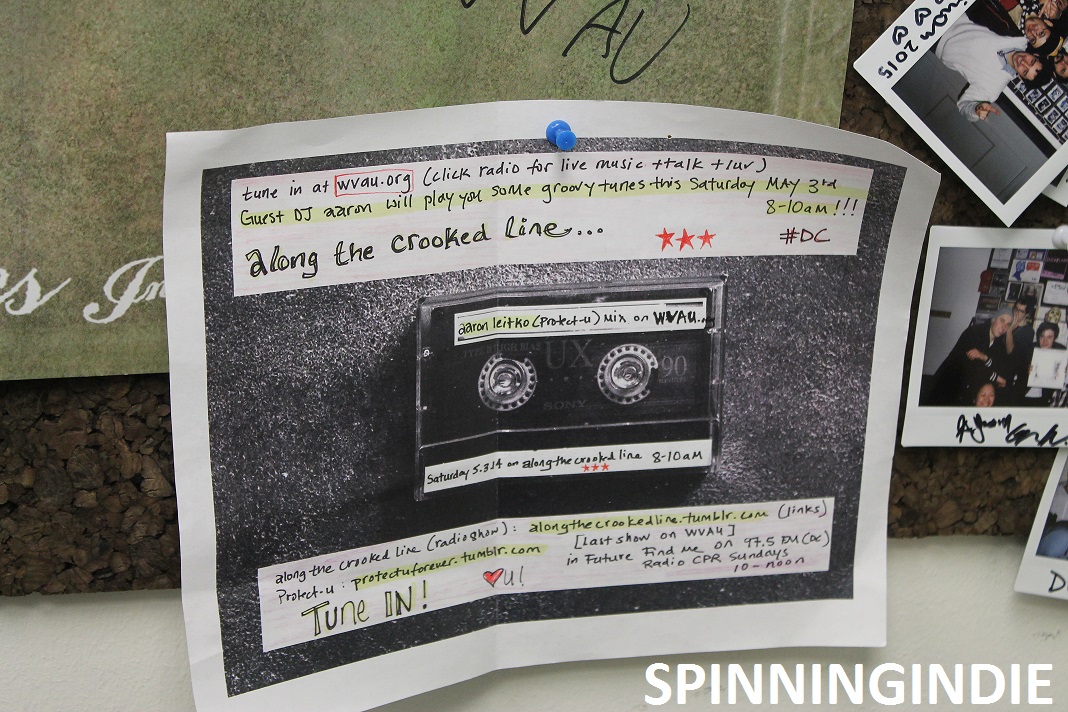 WVAU
tune in at wvau.org (click radio for live music + talk + luv)
Guest DJ aaron will play you some groovy tunes this Saturday MAY 3rd
8-10am!!!
along the crooked line...
★★★ #DC
aaron leitko (Protect-u) Mix on WVAU.
UX
90
SONY
Saturday 5.3.14 on along the crooked line 8-10am
★★★
along the crooked line (radioshow): alongthecrookedline.tumblr.com (links)
Protect-u: protectuforever.tumblr.com
[Last show on WVAU]
in Future Find me on 97.5 FM (DC)
Radio CPR Sundays
10-noon
♥ u!
Tune IN!
2015
SPINNINGINDIE